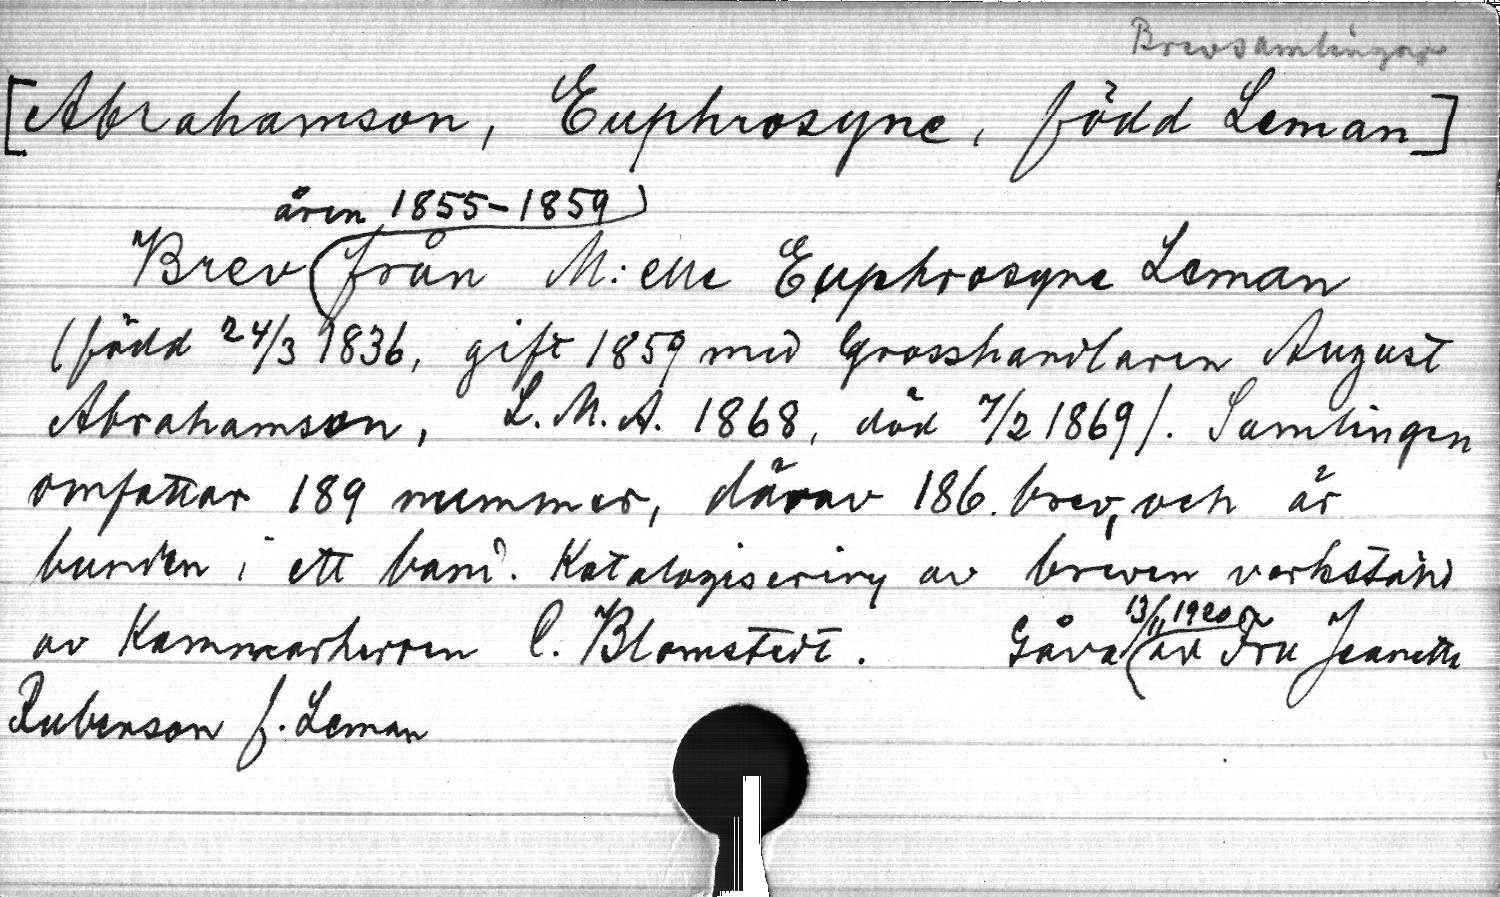 Brevsamlingar
[Abrahamson, Euphrosyne, född Leman]
åren 1855-1859
Brev från M:elle Euphrosyne Leman
(född 24/3 1836, gift 1859 med Grosshandlaren August
Abrahamson, L.M.A. 1868, död 7/2 1869/. Samlingen
omfattar 189 nummer, därav 186 brev, och är
bunden i ett band. Katalogisering av breven verkställd
av Kammarherren C. Blomstedt. Gåva 13/11 1920 av Fru Jeanette
Rubenson f. Leman